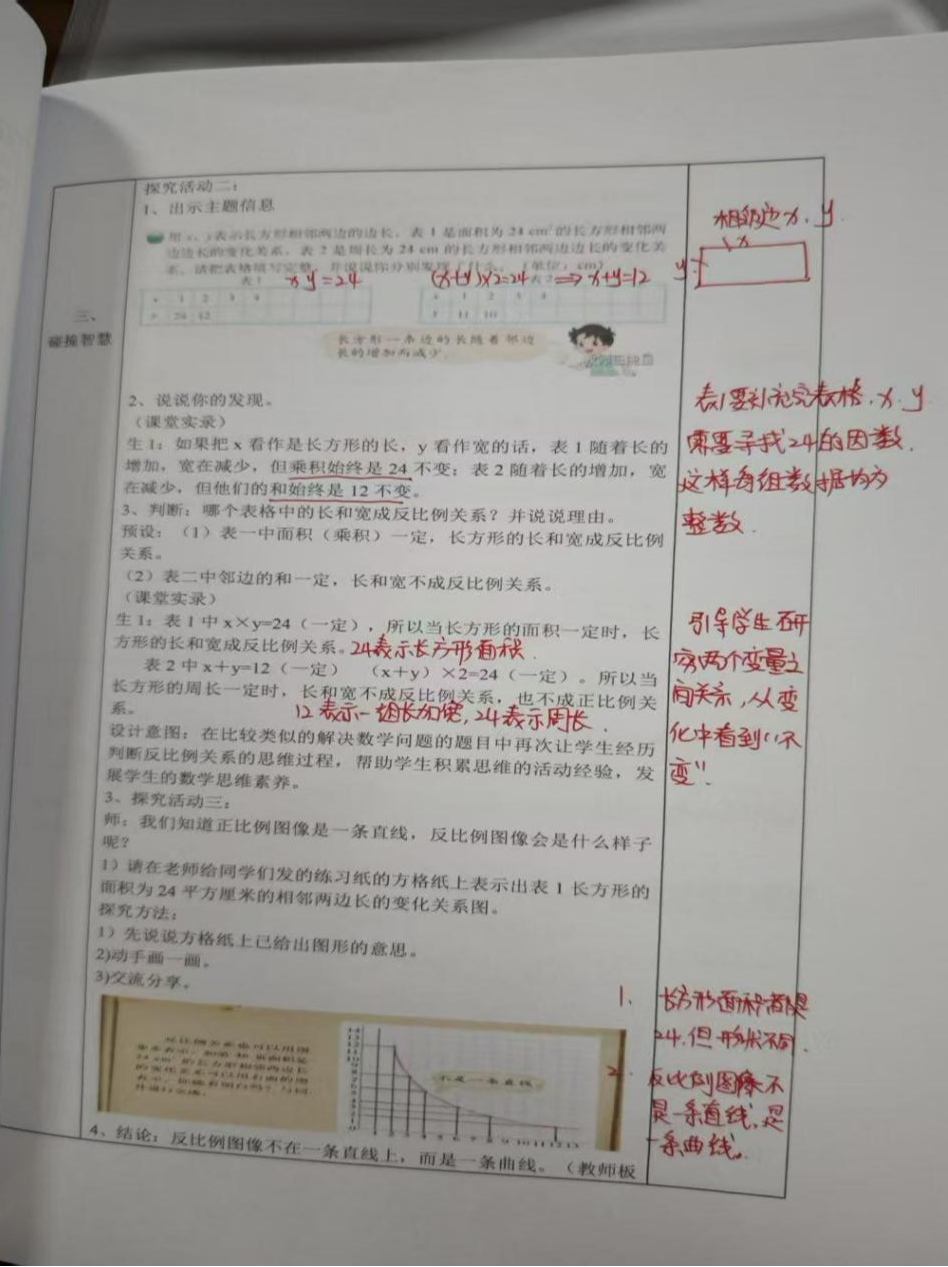 探究活动二：
1、出示主题信息
用 x、y表示长方形相邻两边的边长，表 1 是面积为 24 cm² 的长方形相邻两
边边长的变化关系，表 2 是周长为 24 cm 的长方形相邻两边边长的变化关
系。请把表格填写完整，并说说你分别发现了什么。（单位：cm）
表1
xy=24
(x+y)×2=24⇒x+y=12
x 1 2 3 4
y 24 12
x 1 2 3 4
y 11 10
长方形一条边的长随着邻边
长的增加而减少。
三、
碰撞智慧
2、说说你的发现。
（课堂实录）
生 1：如果把 x 看作是长方形的长，y 看作宽的话，表 1 随着长的
增加，宽在减少，但乘积始终是 24 不变；表 2 随着长的增加，宽
在减少，但他们的和始终是 12 不变。
3、判断：哪个表格中的长和宽成反比例关系？并说说理由。
预设：（1）表一中面积（乘积）一定，长方形的长和宽成反比例
关系。
（2）表二中邻边的和一定，长和宽不成反比例关系。
（课堂实录）
生 1：表 1 中 x×y=24（一定），所以当长方形的面积一定时，长
方形的长和宽成反比例关系。
24表示长方形面积.
表 2 中 x＋y=12（一定） （x＋y）×2=24（一定）。所以当
长方形的周长一定时，长和宽不成反比例关系，也不成正比例关
系。
12表示一组长加宽，24表示周长.
设计意图：在比较类似的解决数学问题的题目中再次让学生经历
判断反比例关系的思维过程，帮助学生积累思维的活动经验，发
展学生的数学思维素养。
3、探究活动三：
师：我们知道正比例图像是一条直线，反比例图像会是什么样子
呢？
1）请在老师给同学们发的练习纸的方格纸上表示出表 1 长方形的
面积为 24 平方厘米的相邻两边长的变化关系图。
探究方法：
1）先说说方格纸上已给出图形的意思。
2)动手画一画。
3)交流分享。
不是一条直线
4、结论：反比例图像不在一条直线上，而是一条曲线。（教师板
相邻边x，y.
x
y
表1要补充完表格，x.y
需要寻找24的因数.
这样每组数据均为
整数.
引导学生研
究两个变量之
间关系，从变
化中看到“不
变”.
1、长方形面积都是
24.但形状不同.
2. 反比例图像不
是一条直线，是
一条曲线。